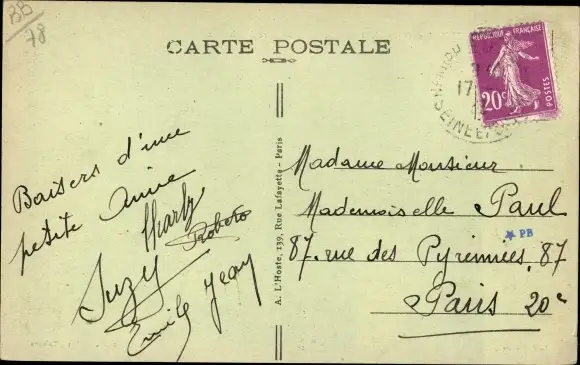 BB
78
CARTE POSTALE
RÉPUBLIQUE FRANÇAISE
20c
POSTES
17
SEINE ET
Baisers d'une
petite Amie
Roberto
Suzy
Jean
Emile
A. L'Hoste, 139, Rue Lafayette - Paris
Madame Monsieur
Mademoiselle Paul
PB
87. rue des Pyrennées. 87
Paris 20e